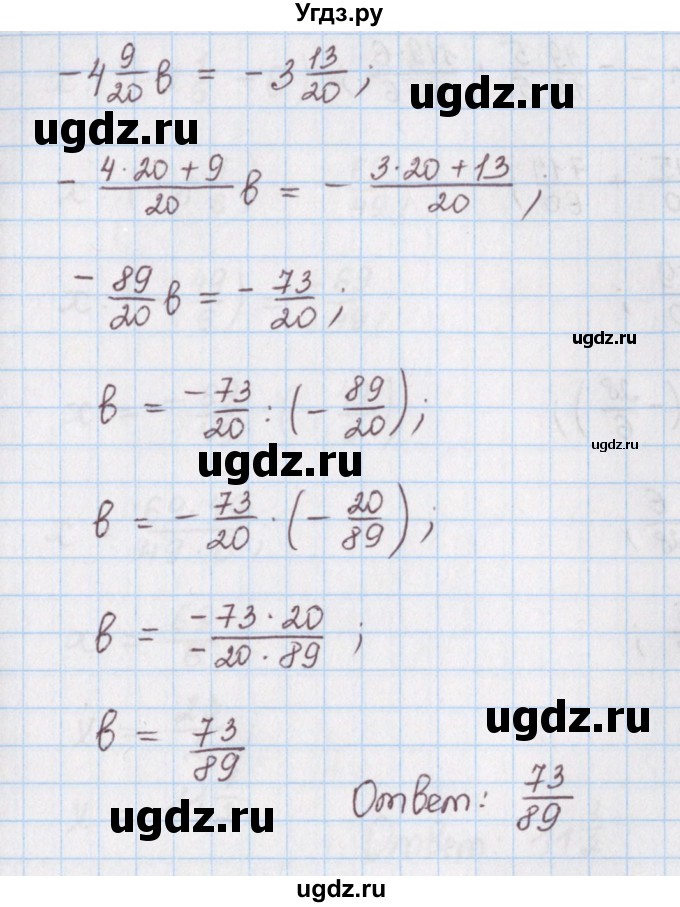 Угдз.ру
-4 9/20 в = -3 13/20;
ugdz.ru
ugdz.ru
- (4·20+9)/20 в = - (3·20+13)/20,
- 89/20 в = - 73/20;
ugdz.ru
в = -73/20 : (- 89/20);
ugdz.ru
ugdz.ru
в = - 73/20 · (- 20/89);
в = (-73·20)/(-20·89);
ugdz.ru
в = 73/89
Ответ: 73/89
ugdz.ru
ugdz.ru